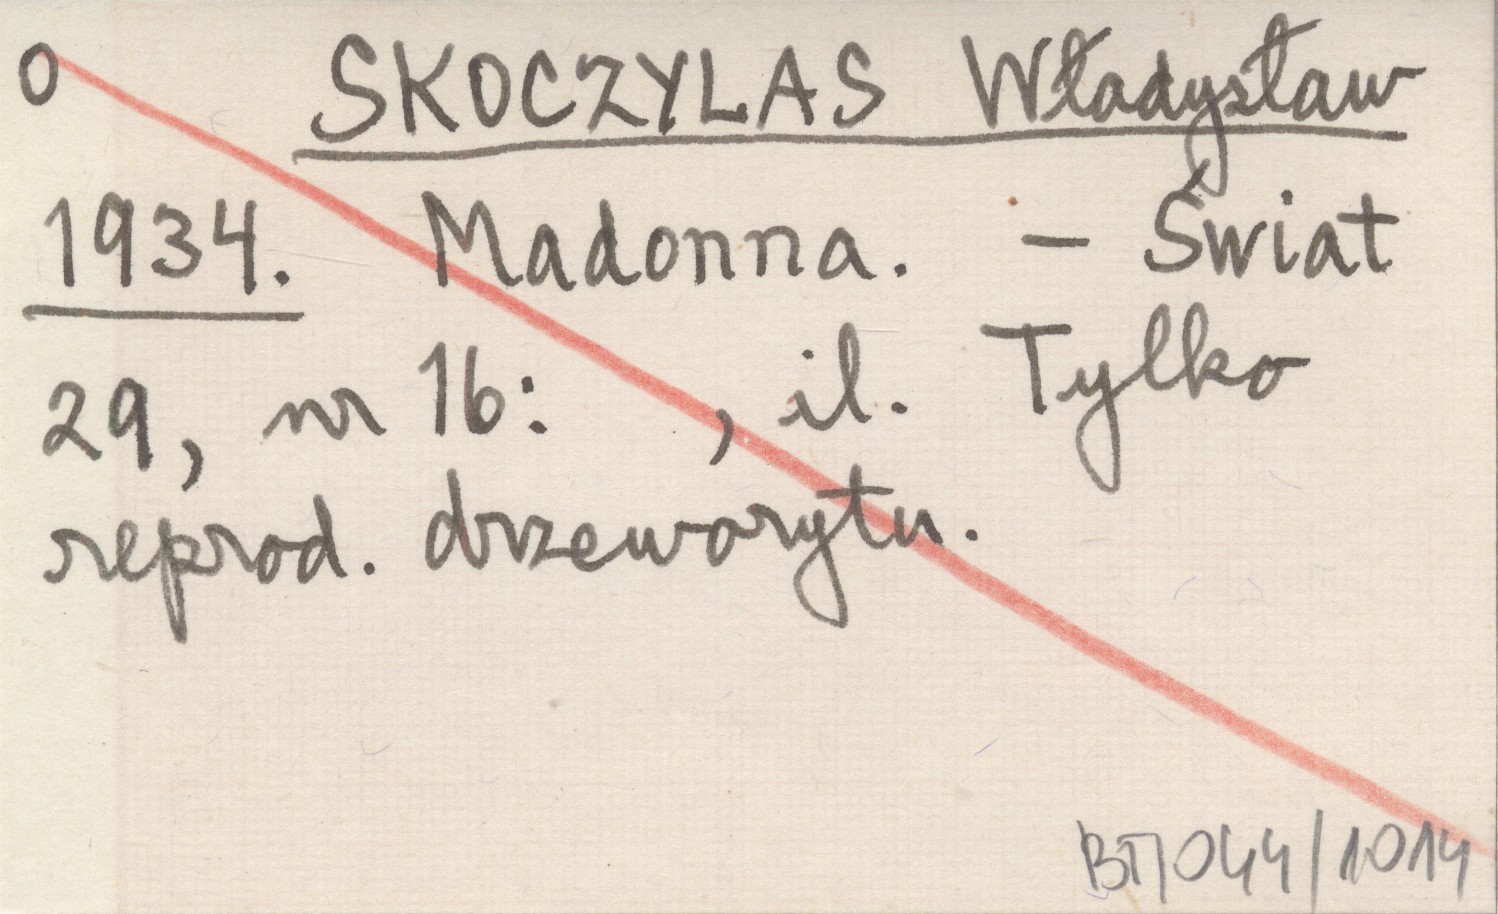 O SKOCZYLAS Władysław
1934. Madonna. – Świat
29, nr 16: , il. Tylko
reprod. drzeworytu.
044/1014